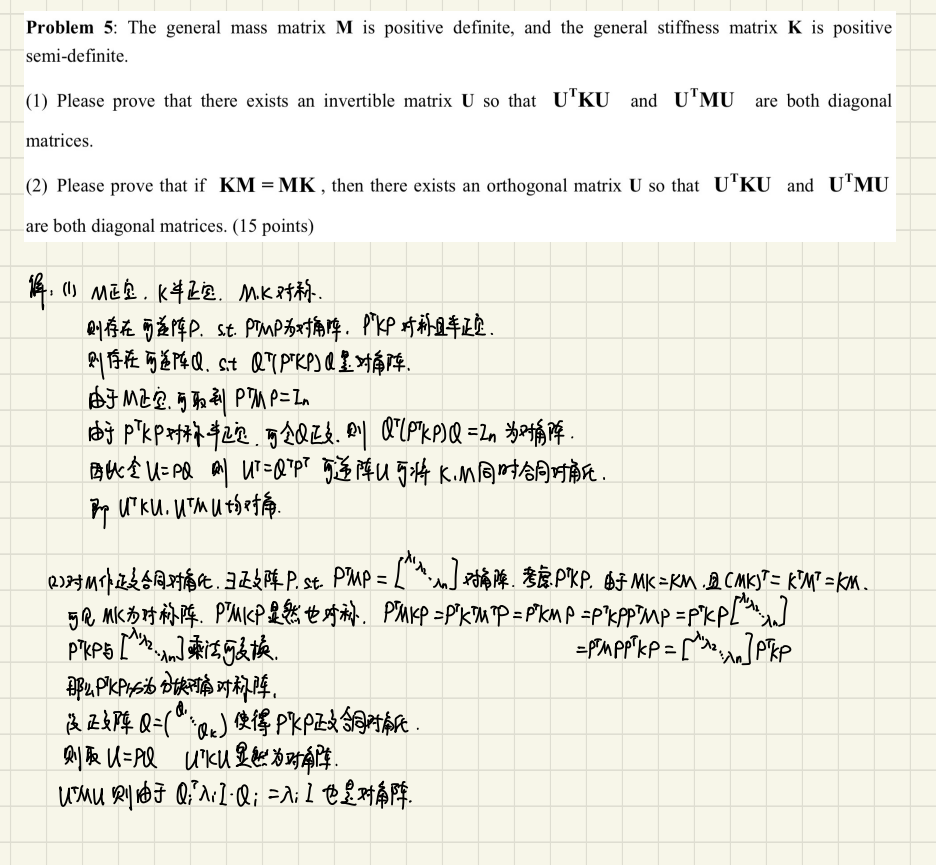 Problem 5: The general mass matrix M is positive definite, and the general stiffness matrix K is positive
semi-definite.
(1) Please prove that there exists an invertible matrix U so that UᵀKU and UᵀMU are both diagonal
matrices.
(2) Please prove that if KM = MK , then there exists an orthogonal matrix U so that UᵀKU and UᵀMU
are both diagonal matrices. (15 points)
解: (1) M正定, K半正定. M.K对称.
则存在可逆阵P. s.t. PᵀMP为对角阵. PᵀKP 对称且半正定.
则存在可逆阵Q. s.t Qᵀ(PᵀKP)Q是对角阵.
由于M正定,可取到 PᵀMP=In
由于PᵀKP对称半正定,可令Q正交,则 Qᵀ(PᵀKP)Q=In 为对角阵.
因此令U=PQ 则 Uᵀ=QᵀPᵀ 可逆阵U可将K.M同时合同对角化.
即UᵀKU. UᵀMU均对角.
(2)对M作正交合同对角化.∃正交阵P. s.t. PᵀMP=[λ₁ λ₂ ⋱ λn]对角阵. 考虑PᵀKP. 由于MK=KM.且(MK)ᵀ=KᵀMᵀ=KM.
可见MK为对称阵. PᵀMKP显然也对称. PᵀMKP=PᵀKᵀMᵀP=PᵀKMP=PᵀKPPᵀMP=PᵀKP[λ₁ λ₂ ⋱ λn]
PᵀKP与[λ₁ λ₂ ⋱ λn]乘法可交换. =PᵀMPPᵀKP=[λ₁ λ₂ ⋱ λn]PᵀKP
那么PᵀKP必为分块对角对称阵.
设正交阵Q=(Q₁ ⋱ Qk)使得PᵀKP正交合同对角化.
则取U=PQ UᵀKU显然为对角阵.
UᵀMU则由于QᵢᵀλᵢI·Qᵢ=λᵢI也是对角阵.